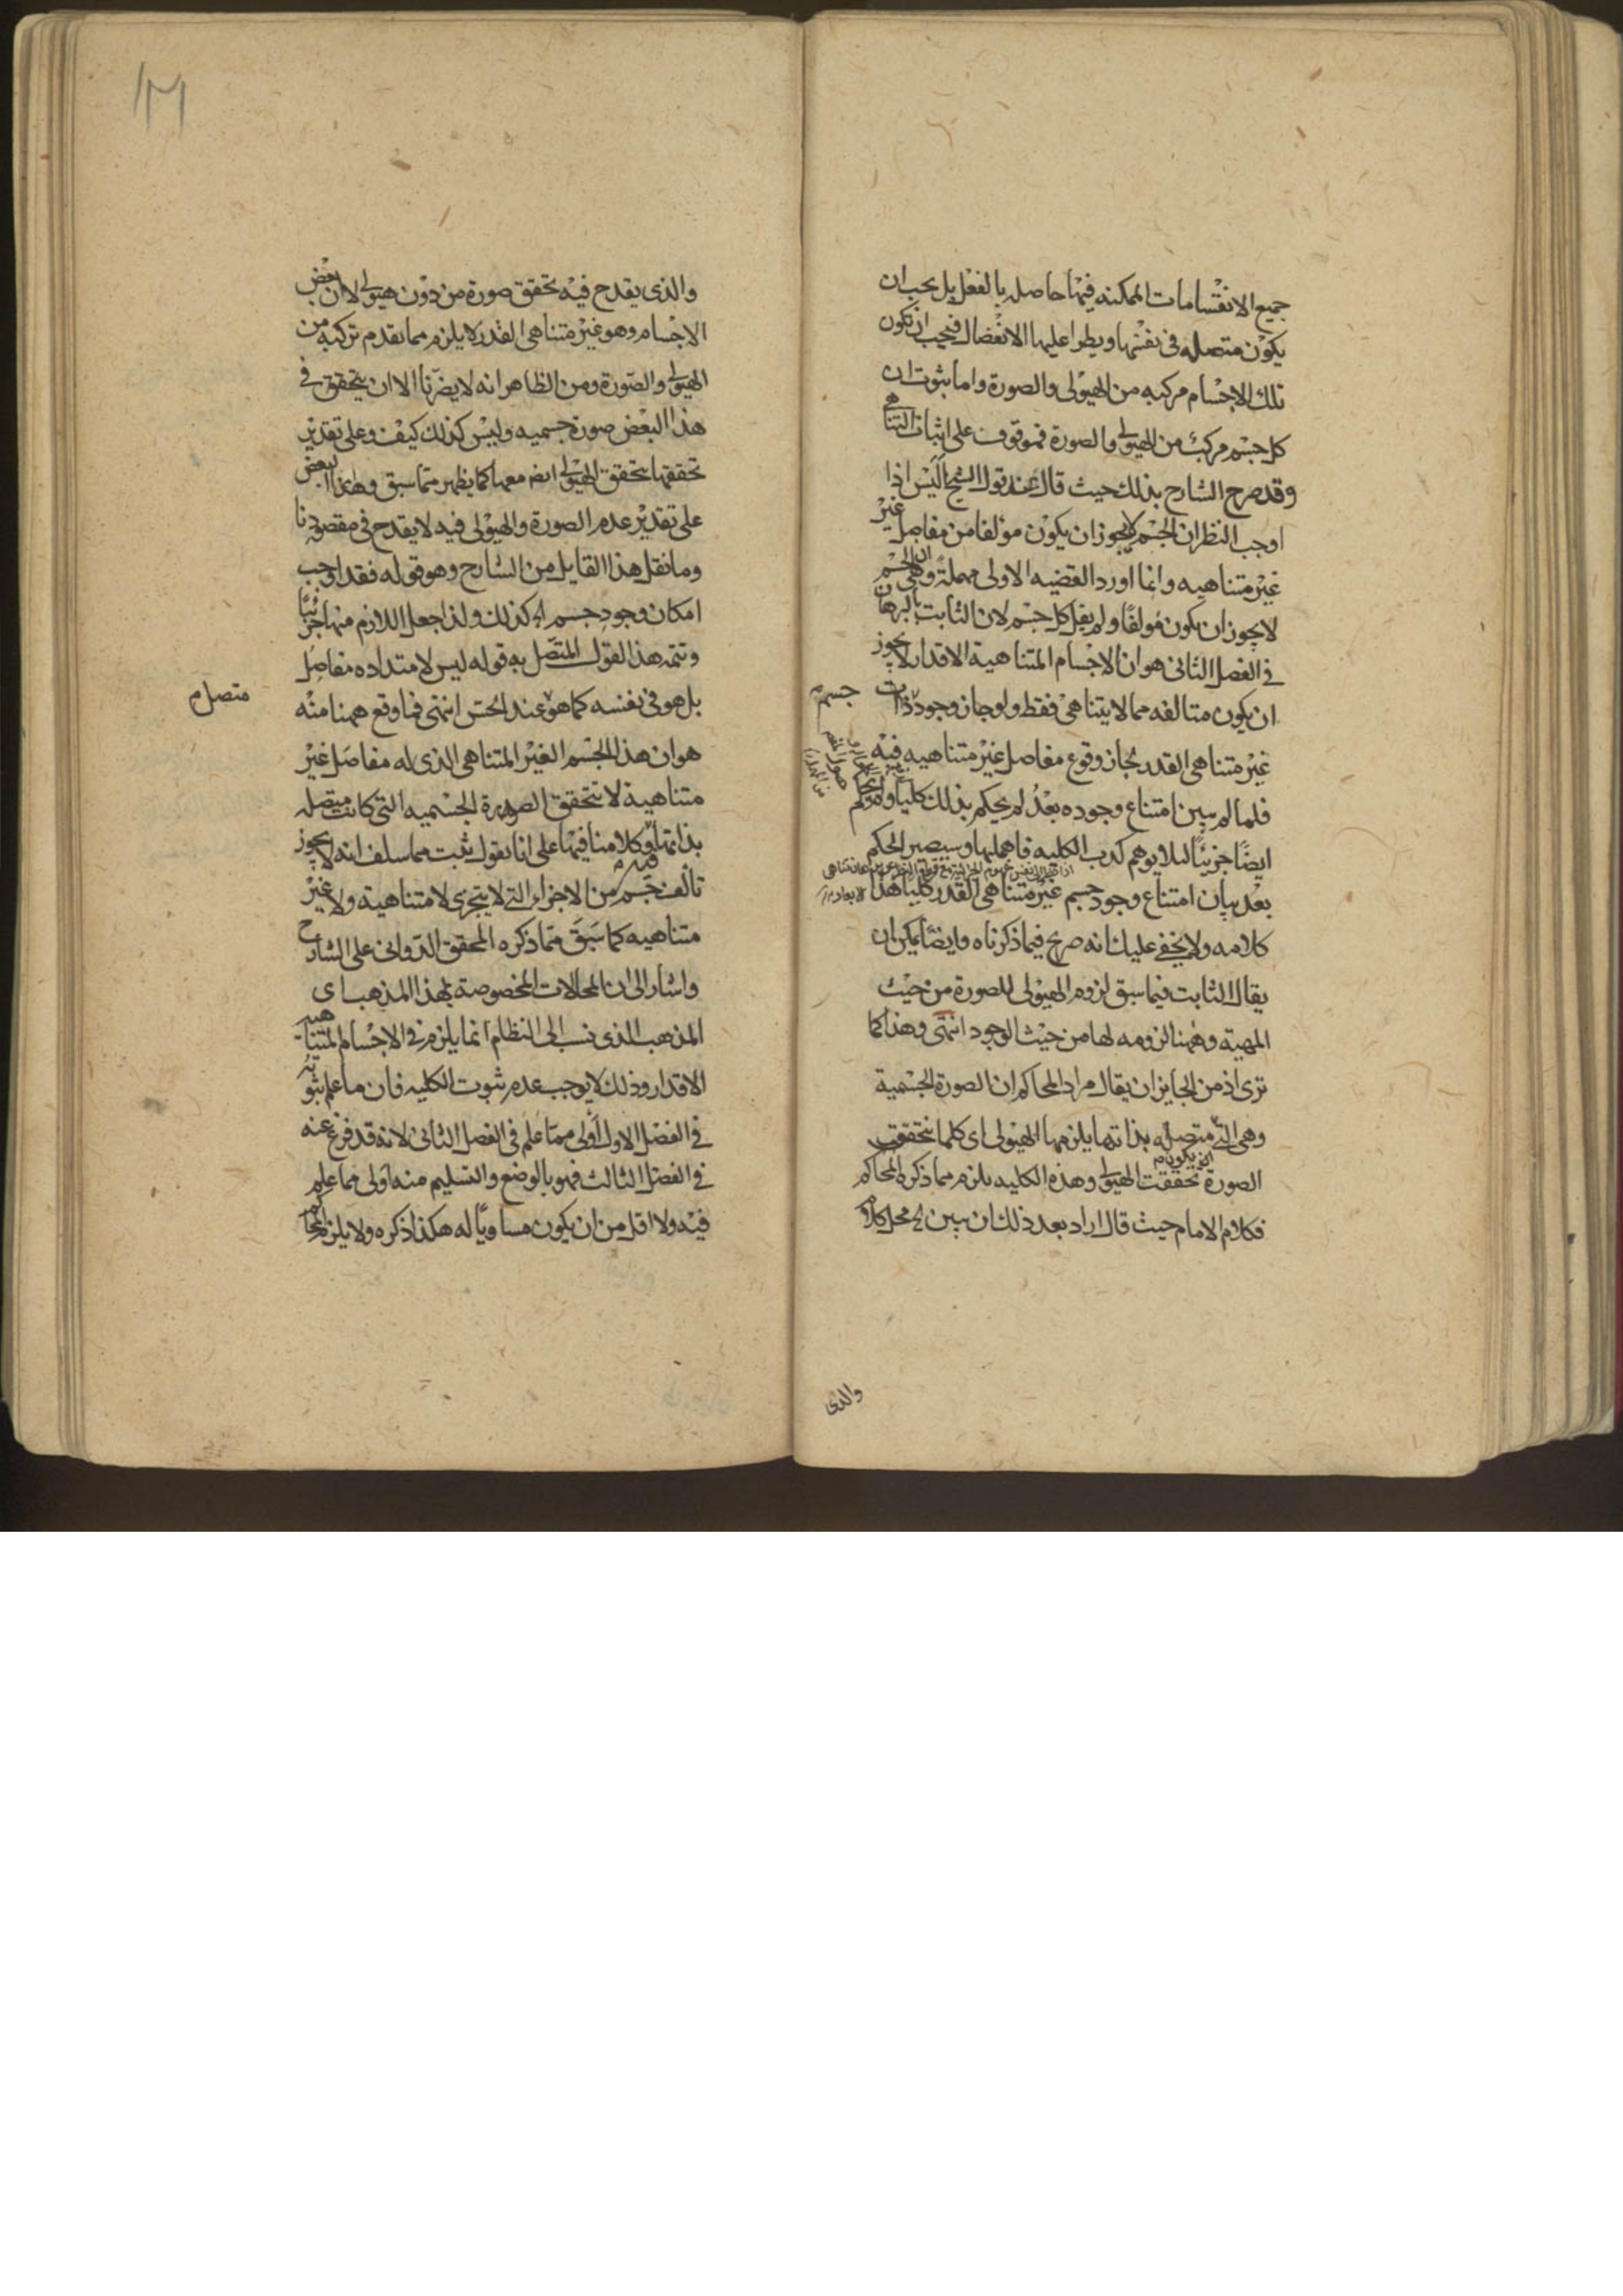 جميع الانقسامات الممكنه فيها حاصله بالفعل بل يجب ان
يكون متصله فى نفسها ويطرا عليها الانفصال فيجب ان تكون
تلك الاجسام مركبه من الهيولى والصورة واما ثبوت ان
كل جسم مركب من الهيولى والصورة فموقوف على اثبات التناهى
وقد صرح الشارح بذلك حيث قال عند قول الشيخ اليس اذا
اوجب النظر ان الجسم لا يجوز ان يكون مؤلفا من مفاصل غير
غير متناهيه وانما اورد القضيه الاولى مهملة وهى ان الجسم
لا يجوز ان يكون مؤلفا ولم يقل كل جسم لان الثابت بالبرهان
فى الفصل الثانى هو ان الاجسام المتناهية الاقدار لا يجوز
ان يكون متالفه مما لا يتناهى فقط ولو جاز وجود ذات
جسم م
غير متناهى القدر لجاز وقوع مفاصل غير متناهيه فيه
فلما لم يبين امتناع وجوده بعد لم يحكم بذلك كليا ولم يحكم
ايضا جزئيا لئلا يوهم كذب الكليه فاهملها وسيصير الحكم
بعد بيان امتناع وجود جسم غير متناهى القدر كليا هذا
كلامه ولا يخفى عليك انه صريح فيما ذكرناه وايضا يمكن ان
يقال الثابت فيما سبق لزوم الهيولى للصورة من حيث
المهية وههنا لزومه لها من حيث الوجود انتهى وهذا كما
ترى اذ من الجايز ان يقال مراد المحاكم ان الصورة الجسمية
وهى التى متصله بذاتها يلزمها الهيولى اى كلما تحققت
الصورة تحققت الهيولى وهذه الكليه يلزم مما ذكره المحاكم
ان يكون م
فكلام الامام حيث قال اراد بعد ذلك ان يبين محل كلام
والذى
والذى يقدح فيه تحقق صورة من دون هيولى لا ان بعض
الاجسام وهو غير متناهى القدر لا يلزم مما تقدم تركبه من
الهيولى والصورة ومن الظاهر انه لا يضرنا الا ان يتحقق فى
هذا البعض صورة جسميه وليس كذلك كيف وعلى تقدير
تحققها يتحقق الهيولى ايضا معها كما يظهر مما سبق وهذا البعض
على تقدير عدم الصورة والهيولى فيه لا يقدح فى مقصودنا
وما نقل هذا القايل من الشارح وهو قوله فقد اوجب
امكان وجود جسم كذلك ولذا جعل اللازم منها جزئيا
وتتمه هذا القول المتصل به قوله ليس لامتداده مفاصل
بل هو فى نفسه كما هو عند الحس انتهى فما وقع ههنا منه
متصل م
هو ان هذا الجسم الغير المتناهى الذى له مفاصل غير
متناهية لا تتحقق الصورة الجسميه التى كانت متصله
بذاتها وكلامنا فيها على انا نقول ثبت مما سلف انه لا يجوز
تالف جسم من الاجزاء التى لا يتجزى لا متناهية ولا غير
متناهيه كما سبق مما ذكره المحقق الدوانى على الشارح
واشار الى ان المحالات المخصوصة بهذا المذهب اى
المذهب الذى نسب الى النظام انما يلزم فى الاجسام المتناهيه
الاقدار وذلك لا يوجب عدم ثبوت الكليه فان ما علم ثبوته
فى الفصل الاول اولى مما علم فى الفصل الثانى لانه قد فرغ عنه
فى الفصل الثالث فهو بالوضع والتسليم منه اولى مما علم
فيه ولا اقل من ان يكون مساويا له هكذا ذكره ولا يلزم المحاكم